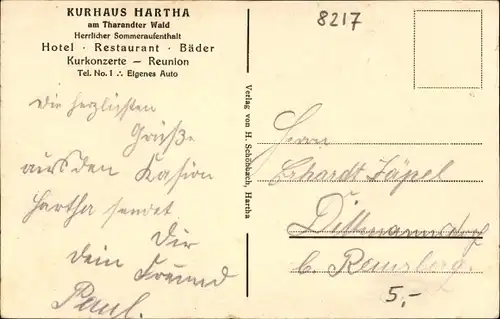 KURHAUS HARTHA
am Tharandter Wald
Herrlicher Sommeraufenthalt
Hotel · Restaurant · Bäder
Kurkonzerte — Reunion
Tel. No. 1 ∴ Eigenes Auto
Die herzlichsten
Grüße
aus den Kasion
Hartha sendet
Dir
dein Freund
Paul.
Verlag von H. Schönbach, Hartha
8217
Herrn
Erhardt Jäpel
Dittmannsdorf
b.
5,-